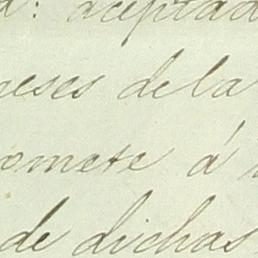 : aceptad
eses de la
omete á
de dichas